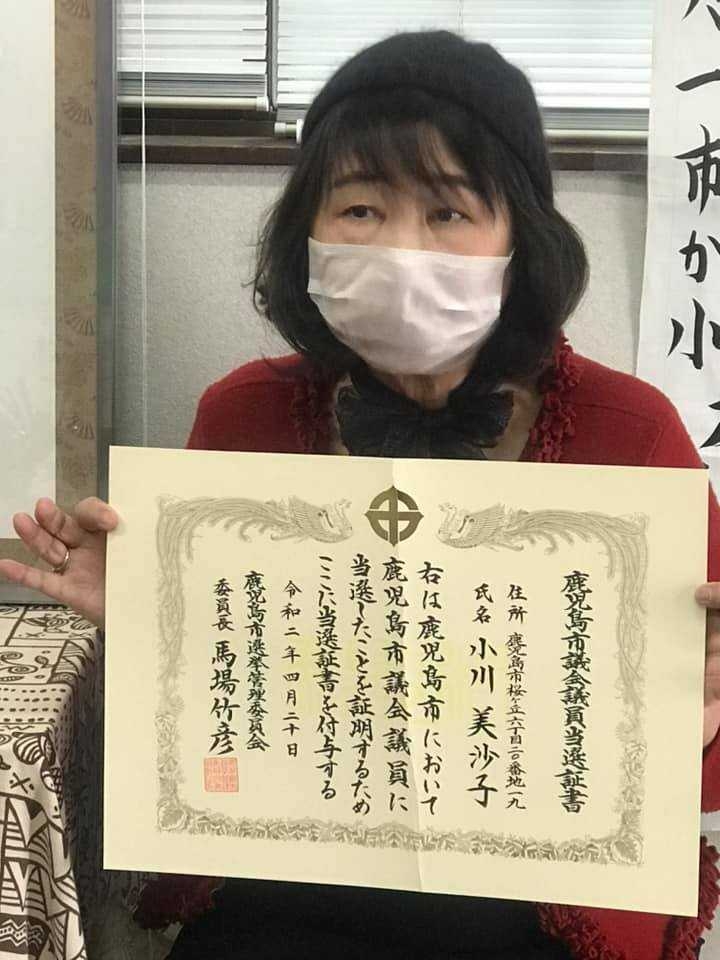 鹿児島市議会議員当選証書
住所 鹿児島市桜ヶ丘六丁目二〇番地一九
氏名 小川美沙子
右は鹿児島市において
鹿児島市議会議員に
当選したことを証明するため
ここに当選証書を付与する
令和二年四月二十日
鹿児島市選挙管理委員会
委員長 馬場竹彦